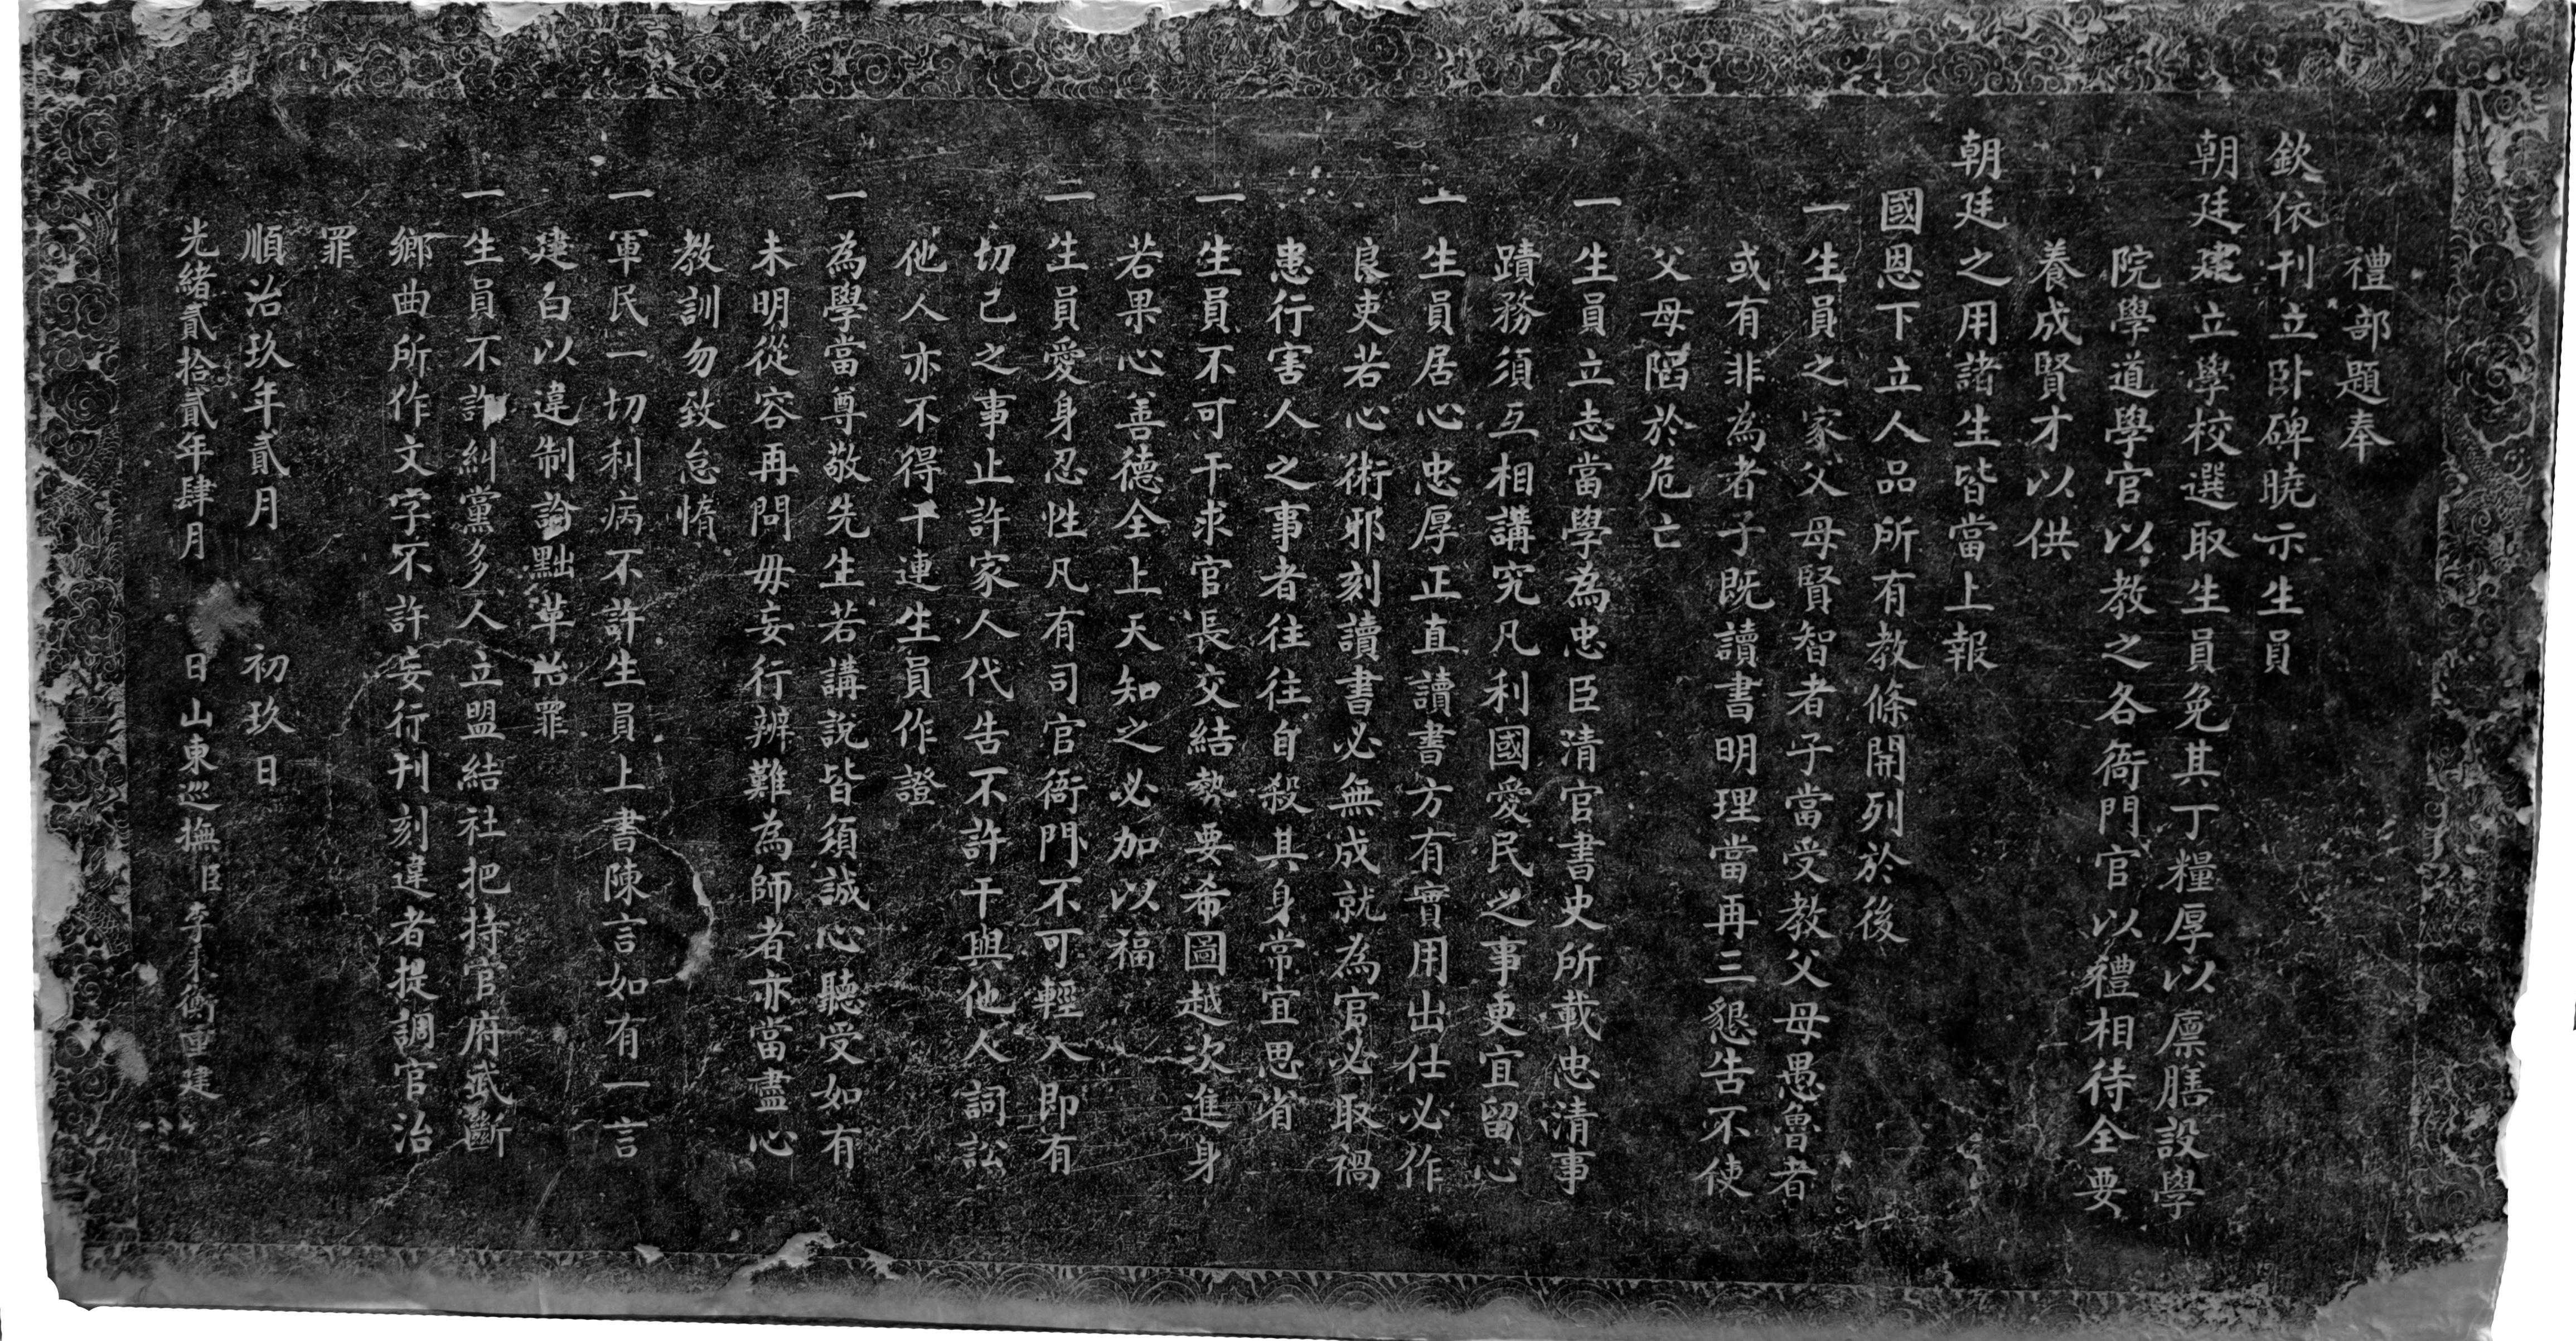 禮部題奉
欽依刊立卧碑曉示生員
朝廷建立學校選取生員免其丁糧厚以廪膳設學
院學道學官以教之各衙門官以禮相待全要
養成賢才以供
朝廷之用諸生皆當上報
國恩下立人品所有教條開列於後
一生員之家父母賢智者子當受教父母愚魯者
或有非為者子既讀書明理當再三懇告不使
父母陷於危亡
一生員立志當學為忠臣清官書史所載忠清事
蹟務須互相講究凡利國愛民之事更宜留心
一生員居心忠厚正直讀書方有實用出仕必作
良吏若心術邪刻讀書必無成就為官必取禍
患行害人之事者往往自殺其身常宜思省
一生員不可干求官長交結勢要希圖越次進身
若果心善德全上天知之必加以福
一生員愛身忍性凡有司官衙門不可輕入即有
切己之事止許家人代告不許干與他人詞訟
他人亦不得干連生員作證
一為學當尊敬先生若講說皆須誠心聽受如有
未明從容再問毋妄行辨難為師者亦當盡心
教訓勿致怠惰
一軍民一切利病不許生員上書陳言如有一言
建白以違制論黜革治罪
一生員不許糾黨多人立盟結社把持官府武斷
鄉曲所作文字不許妄行刊刻違者提調官治
罪
順治玖年貳月 初玖日
光緒貳拾貳年肆月 日山東巡撫臣李秉衡重建